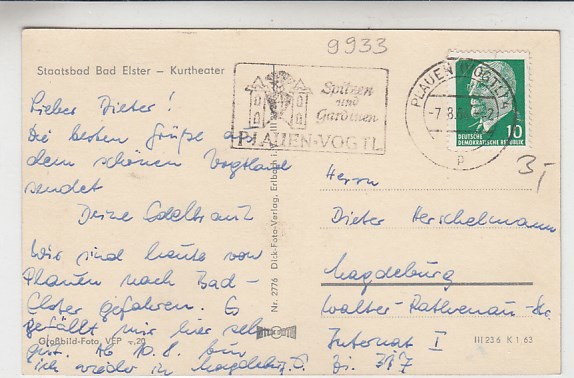 9933
Staatsbad Bad Elster – Kurtheater
Spitzen
und
Gardinen
PLAUEN·VOGTL
PLAUEN (VOGTL)
-7.8.
p
10
DEUTSCHE
DEMOKRATISCHE REPUBLIK
3,-
Lieber Dieter!
Die besten Grüße aus
dem schönen Vogtland
sendet
Deine Edeltraut
Wir sind heute von
Plauen nach Bad-
Elster gefahren. Es
gefällt mir hier sehr
gut. Ab 10.8. bin
ich wieder in Magdeburg.
Großbild-Foto, VEP -,20
Nr. 2776 Dick-Foto-Verlag, Erlbach i.
Herrn
Dieter Herschelmann
Magdeburg
Walter-Rathenau-Str.
Internat I
Zi. 317
III 23 6 K 1.63